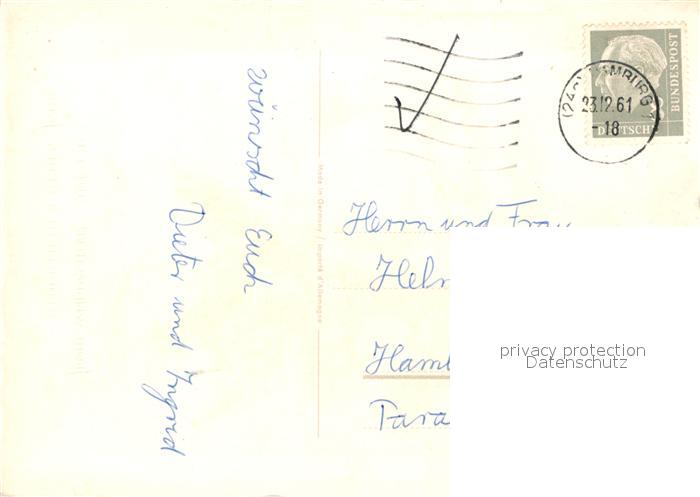 wünscht Euch
Dieter und Ingrid
Made in Germany / Importé d'Allemagne
BUNDESPOST
DEUTSCHE
(24a) HAMBURG 1
23.12.61
-18
Herrn und Frau
Hel
Hamb
Para
privacy protection
Datenschutz